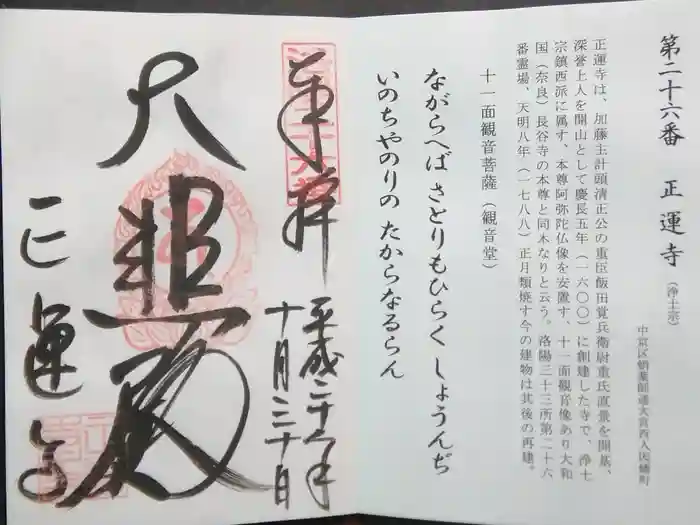 第二十六番 正運寺(浄土宗)
中京区蛸薬師通大宮西入因幡町
正運寺は、加藤主計頭清正公の重臣飯田覚兵衛尉重氏直景を開基、
深誉上人を開山として慶長五年(一六〇〇)に創建した寺で、浄土
宗鎮西派に属す、本尊阿弥陀仏像を安置す、十一面観音像あり大和
国(奈良)長谷寺の本尊と同木なりと云う。洛陽三十三所第二十六
番霊場、天明八年(一七八八)正月類焼す今の建物は其後の再建。
十一面観音菩薩(観音堂)
ながらへば さとりもひらく しょうんぢ
いのちやのりの たからなるらん
奉拝
平成二十八年
十月三十日
大悲殿
正運寺